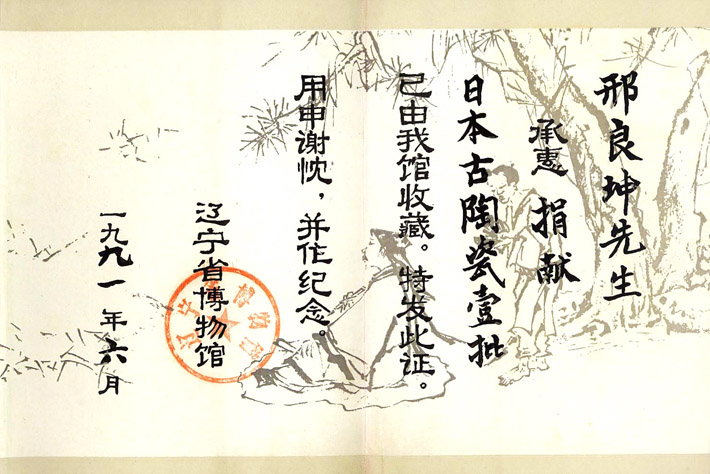 邢良坤先生
承惠 捐献
日本古陶瓷壹批
已由我馆收藏。特发此证。
用申谢忱，并作纪念。
辽宁省博物馆
一九九一年六月
辽宁省博物馆